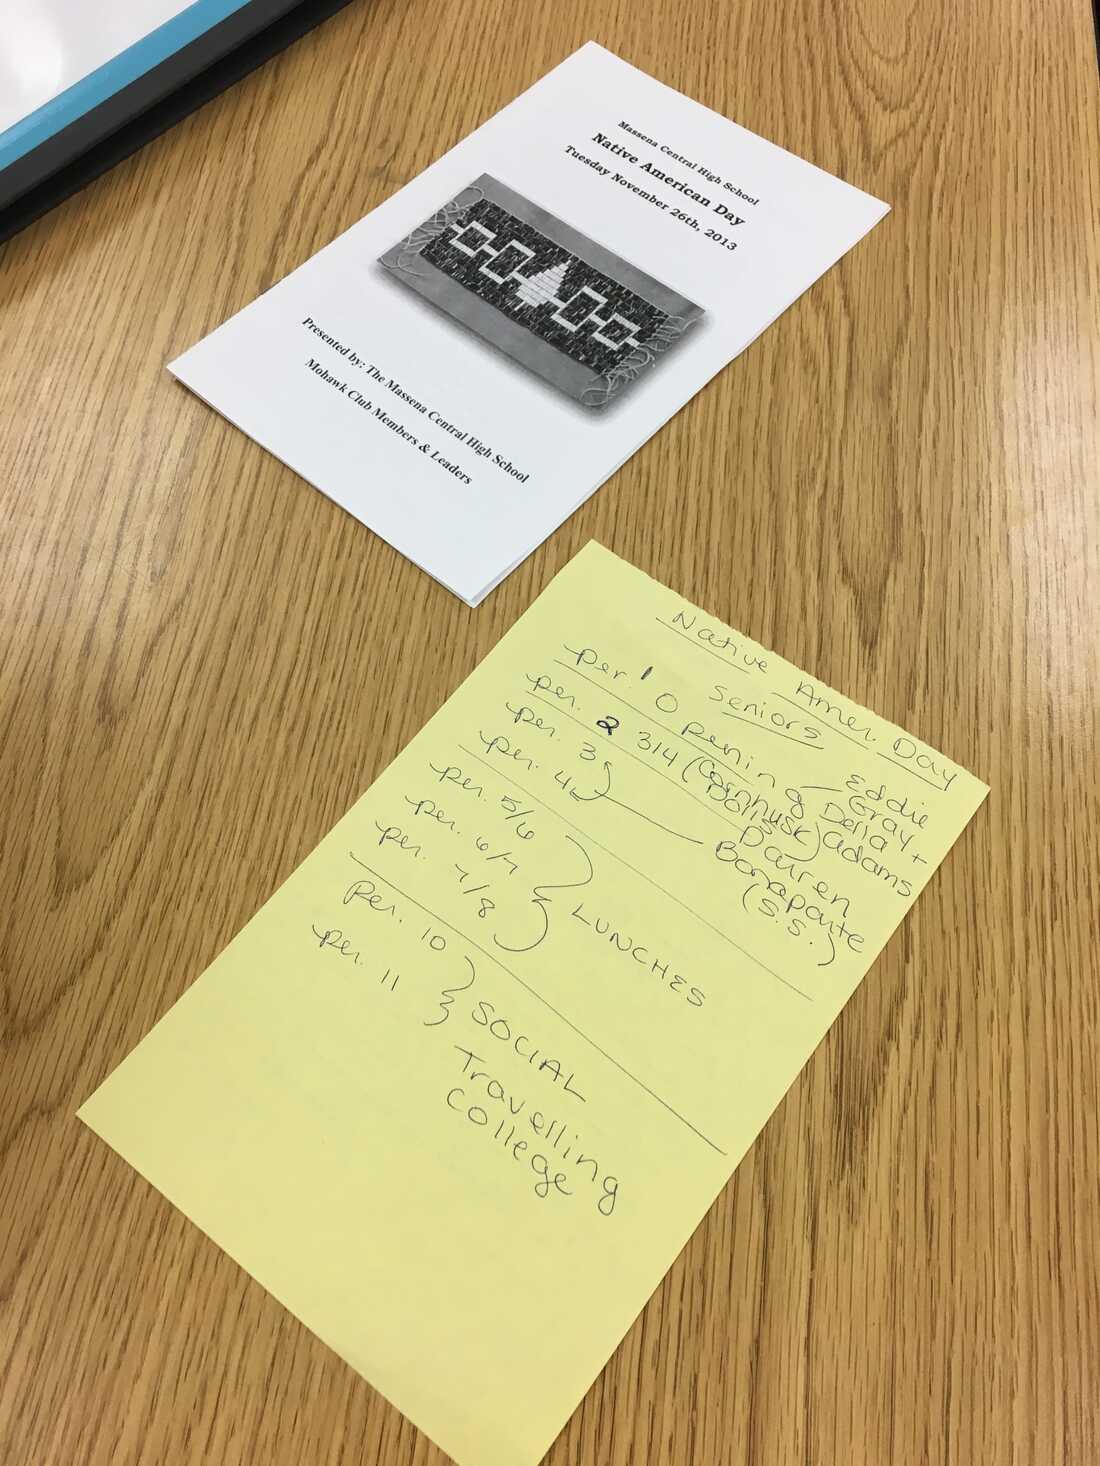 Massena Central High School
Native American Day
Tuesday November 26th, 2013
Presented by: The Massena Central High School
Mohawk Club Members & Leaders
Native Amer. Day
Seniors
per. 1 Opening - Eddie Gray + Della Adams
per. 2 314 (Cornhusk Dolls)
per. 3
per. 4
Darren
Bonaparte
(S.S.)
per. 5/6
per. 6/7
per. 7/8
LUNCHES
per. 10
per. 11
SOCIAL
Travelling
College